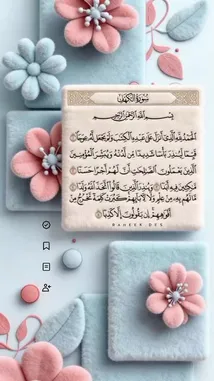 سُورَةُ الكَهْفِ
بِسْمِ اللَّهِ الرَّحْمَٰنِ الرَّحِيمِ
الْحَمْدُ لِلَّهِ الَّذِي أَنْزَلَ عَلَىٰ عَبْدِهِ الْكِتَٰبَ وَلَمْ يَجْعَلْ لَهُ عِوَجًا ١
قَيِّمًا لِيُنْذِرَ بَأْسًا شَدِيدًا مِنْ لَدُنْهُ وَيُبَشِّرَ الْمُؤْمِنِينَ
الَّذِينَ يَعْمَلُونَ الصَّٰلِحَٰتِ أَنَّ لَهُمْ أَجْرًا حَسَنًا ٢
مَٰكِثِينَ فِيهِ أَبَدًا ٣ وَيُنْذِرَ الَّذِينَ قَالُوا اتَّخَذَ اللَّهُ وَلَدًا ٤
مَا لَهُمْ بِهِ مِنْ عِلْمٍ وَلَا لِآبَائِهِمْ كَبُرَتْ كَلِمَةً تَخْرُجُ مِنْ
أَفْوَٰهِهِمْ إِنْ يَقُولُونَ إِلَّا كَذِبًا ٥